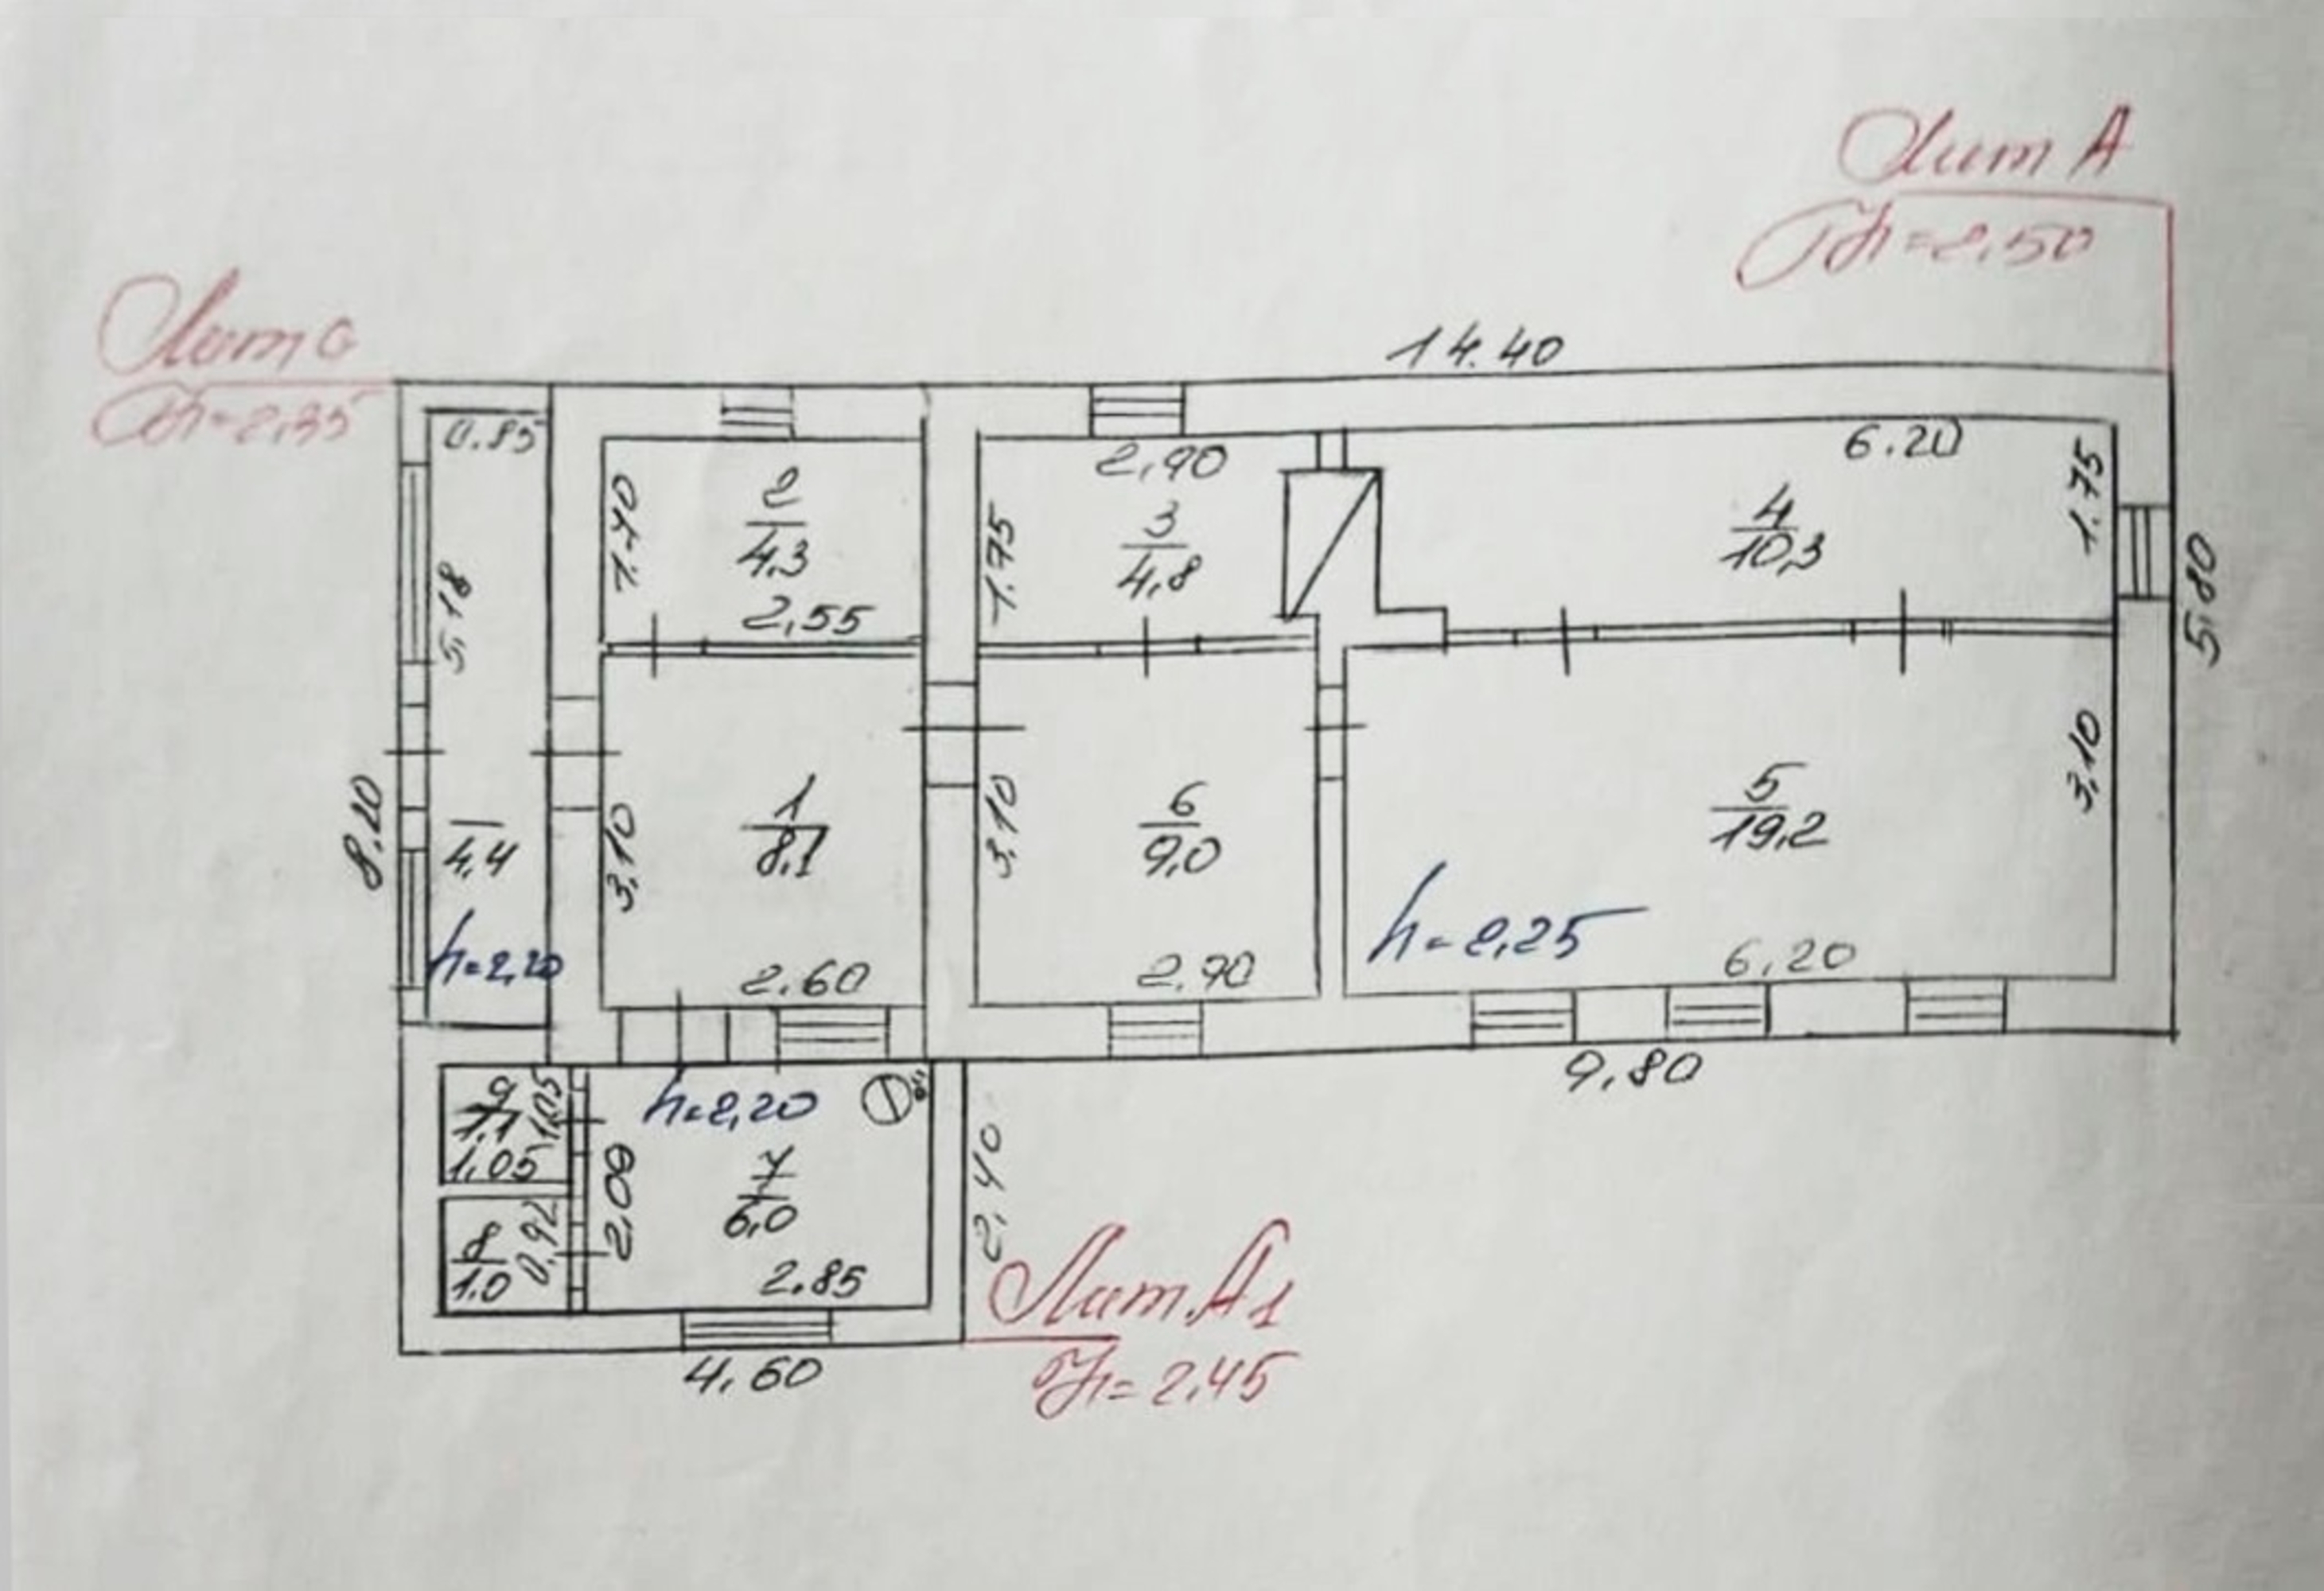 Лит А
H=2,50
14.40
Лит а
H=2,35
0.85
5,18
4,4
h=2,20
8,20
1.70
2
4.3
2,55
2,90
1.75
3
4,8
6.20
4
10,3
1.75
5,80
3,10
1
8,1
2.60
3,10
6
9,0
2.90
5
19,2
3,10
h=2,25
6,20
9,80
9
1,1
1,05
1,05
h=2,20
7
6,0
2,09
2.85
8
1.0
0,92
2,40
4,60
Лит.А1
H=2,45